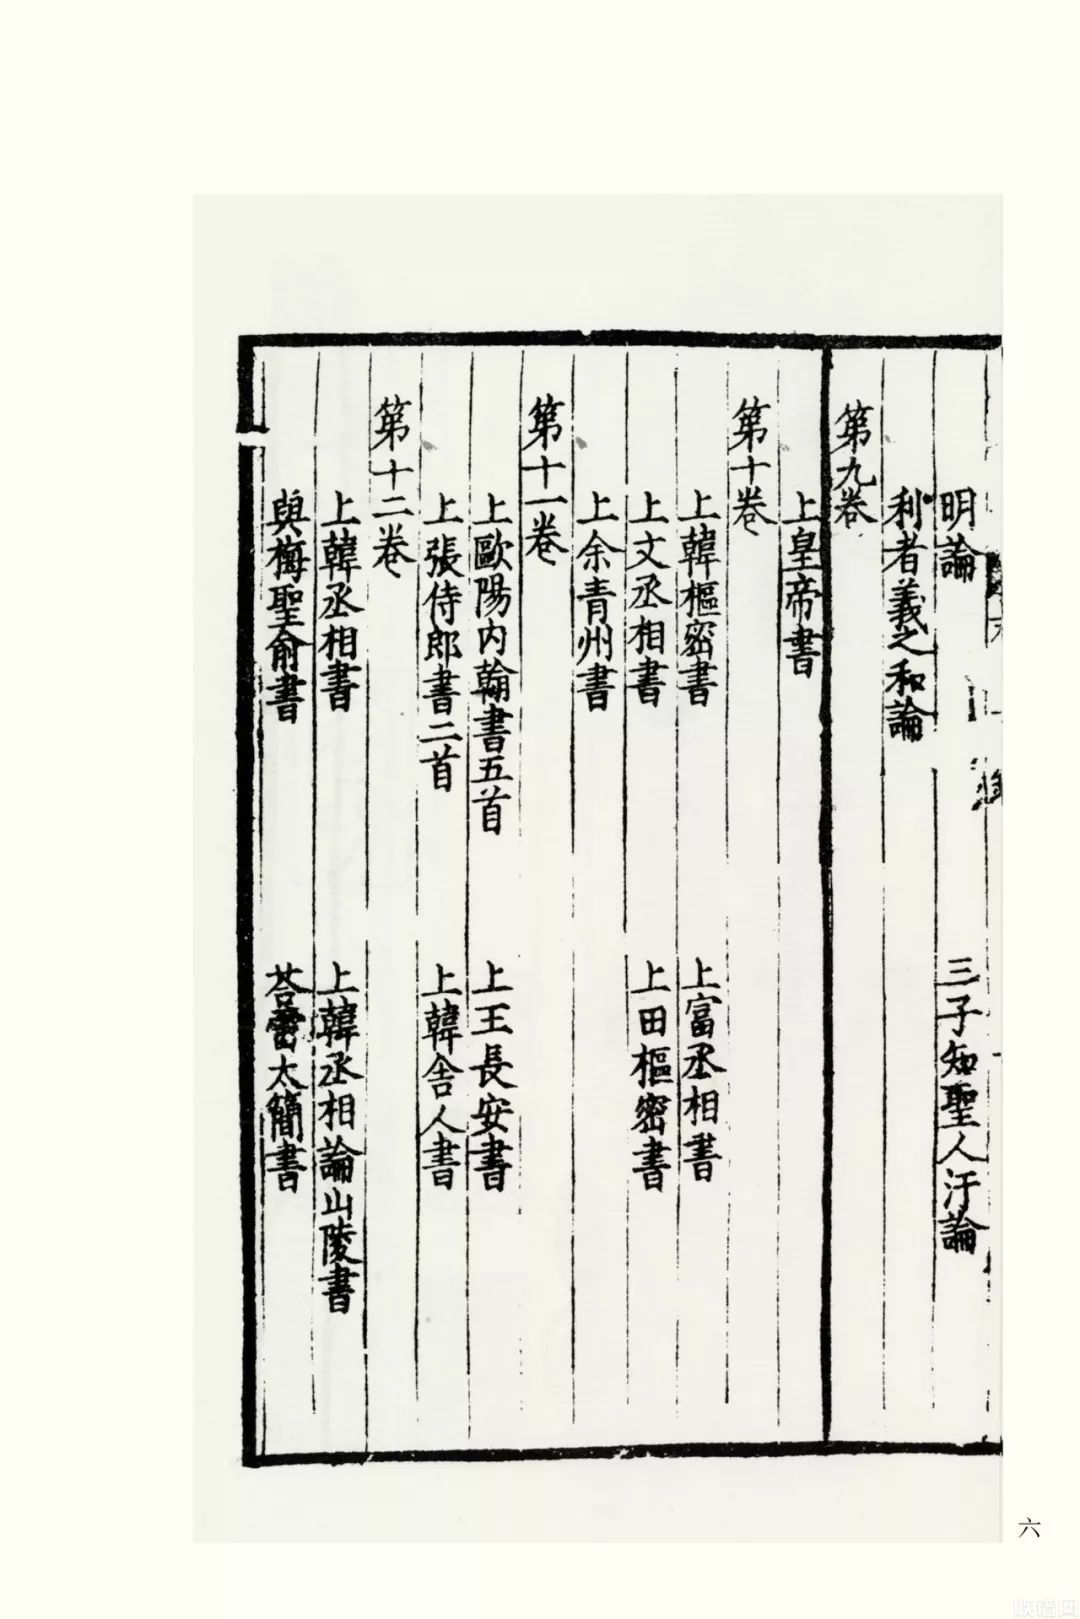 明論　三子知聖人汙論
利者義之和論
第九卷
上皇帝書
第十卷
上韓樞密書　上富丞相書
上文丞相書　上田樞密書
上余青州書
第十一卷
上歐陽内翰書五首　上王長安書
上張侍郎書二首　上韓舎人書
第十二卷
上韓丞相書　上韓丞相論山陵書
與梅聖俞書　荅雷太簡書
六
族谱网